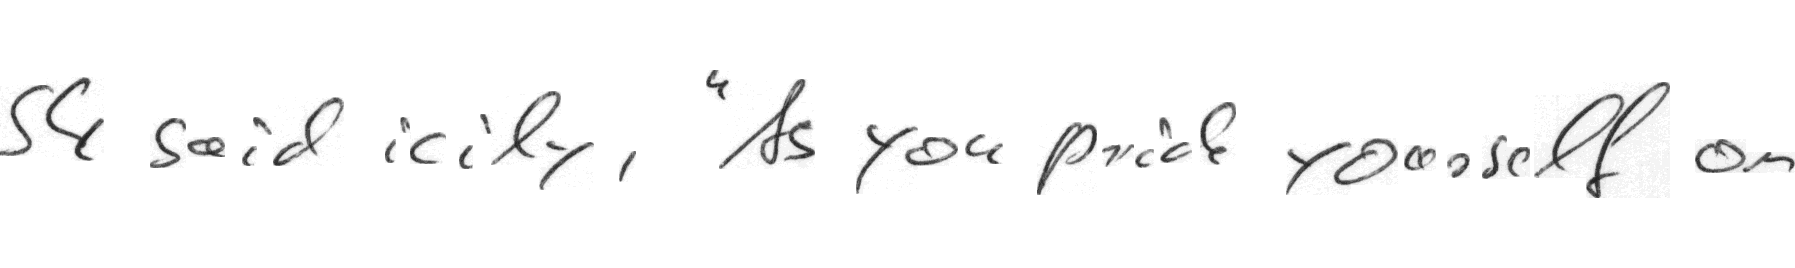 She said icily, "As you pride yourself on